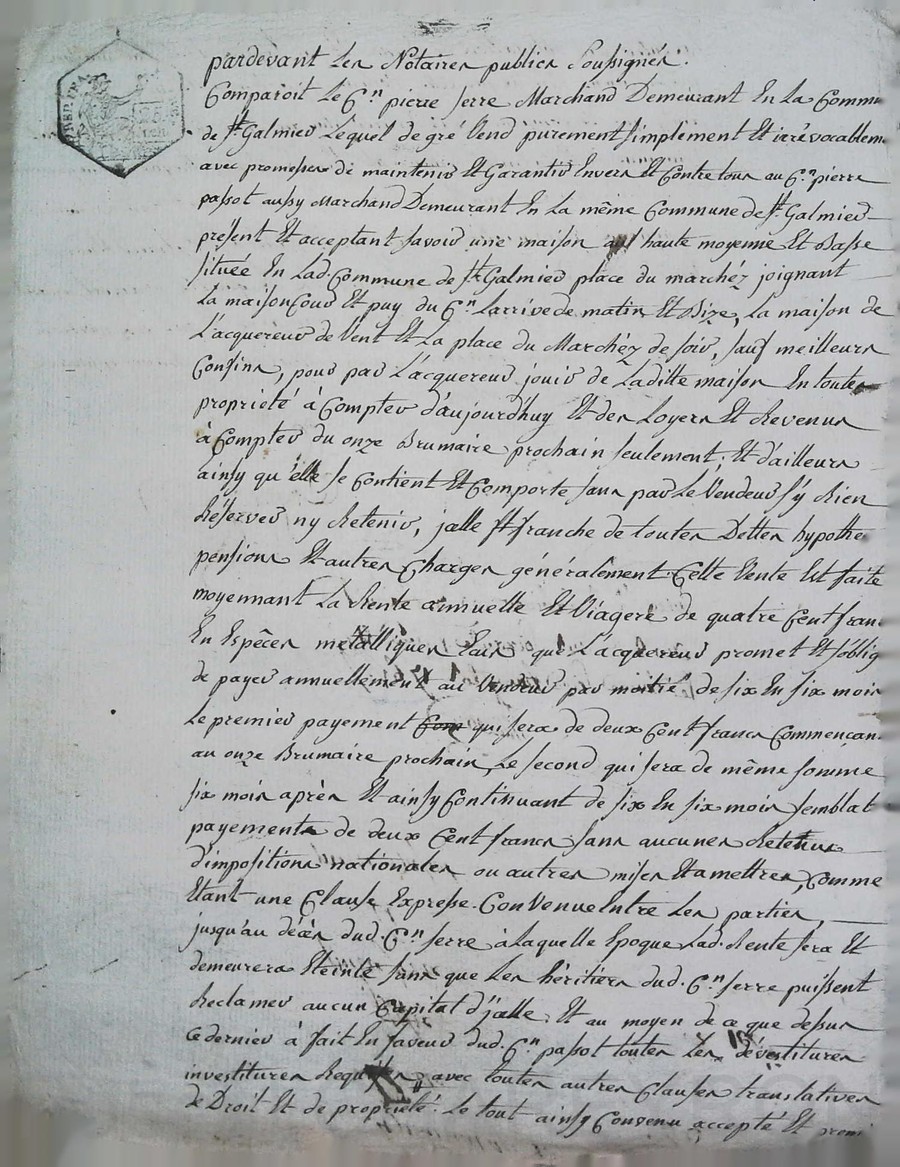 pardevant Les Notaires publics soussignés.
Comparoit Le C.en pierre serre Marchand Demeurant En La Commu
de st. Galmier Lequel de gré Vend purement simplement Et irrévocablem
avec promesse de maintenir Et Garantir Envers Et Contre tous au C.en pierre
passot aussy Marchand Demeurant En La même Commune de st. Galmier
présent Et acceptant savoir une maison haute moyenne Et Basse
située En Lad. Commune de st. Galmier place du marchéz joignant
La maison Cour Et puy du C.en Larrive de matin Et Bize, La maison de
L'acquereur de Vent Et La place du Marchéz de soir, sauf meilleurs
Confins, pour par L'acquereur jouir de Laditte maison En toutes
proprieté à Compter d'aujourdhuy Et des Loyers Et Revenus
à Compter du onze Brumaire prochain seulement; Et d'ailleurs
ainsy qu'elle se Contient Et Comporte sans par Le Vendeur s'y Rien
Réserver ny Retenir, jcelle franche de toutes Dettes hypothe
pensions Et autres Charges généralement. Cette Vente Est faite
moyennant La Rente annuelle Et Viagere de quatre Cent fran
En Espêces metalliques que L'acquereur promet Et s'oblig
de payer annuellement au Vendeur par moitié de six En six mois
Le premier payement qui sera de deux Cent francs Commençan
au onze Brumaire prochain, Le second qui sera de même somme
six mois après Et ainsy Continuant de six En six mois semblat
payements de deux Cent francs sans aucunes Retenues
d'impositions nationales ou autres mises Et a mettres, Comme
Etant une Clause Expresse Convenue Entre Les parties,
jusqu'au décès dud. C.en serre à Laquelle Epoque Lad. Rente sera Et
demeurera Eteinte sans que Les héritiers dud. C.en serre puissent
Reclamer aucun Capital d'jcelle, Et au moyen de ce que dessus
ce dernier à fait En faveur dud. C.en passot toutes Les dévestitures
investitures Requises, avec toutes autres Clauses translatives
de Droit Et de proprieté. Le tout ainsy Convenu accepté Et